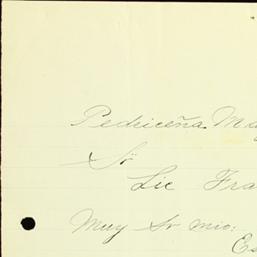 Pedriceña May
Sr
Lic Fra
Muy Sr mio:
Es